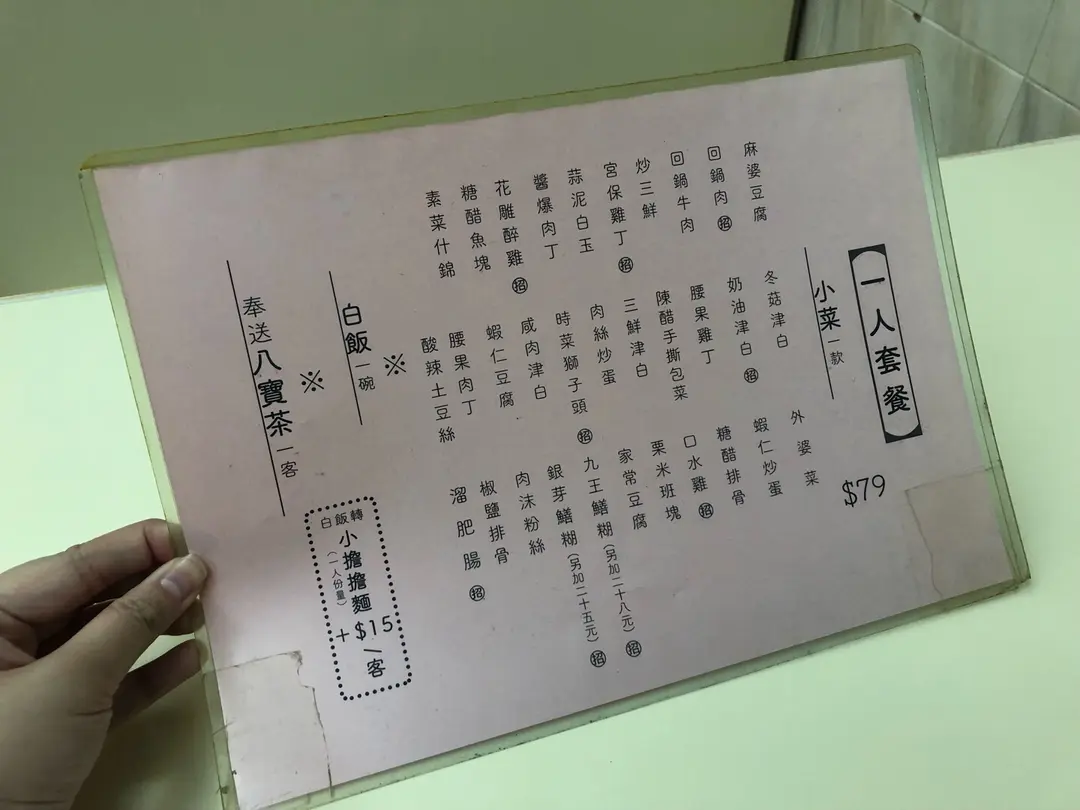 一人套餐
$79
小菜一款
麻婆豆腐
回鍋肉 招
回鍋牛肉
炒三鮮
宮保雞丁 招
蒜泥白玉
醬爆肉丁
花雕醉雞 招
糖醋魚塊
素菜什錦
冬菇津白
奶油津白 招
腰果雞丁
陳醋手撕包菜
三鮮津白
肉絲炒蛋
時菜獅子頭 招
咸肉津白
蝦仁豆腐
腰果肉丁
酸辣土豆絲
外婆菜
蝦仁炒蛋
糖醋排骨
口水雞 招
栗米班塊
家常豆腐
九王鱔糊(另加二十八元) 招
銀芽鱔糊(另加二十五元) 招
肉沫粉絲
椒鹽排骨
溜肥腸 招
※
白飯一碗
※
奉送八寶茶一客
白飯轉
小擔擔麵
(一人份量)
+$15/客